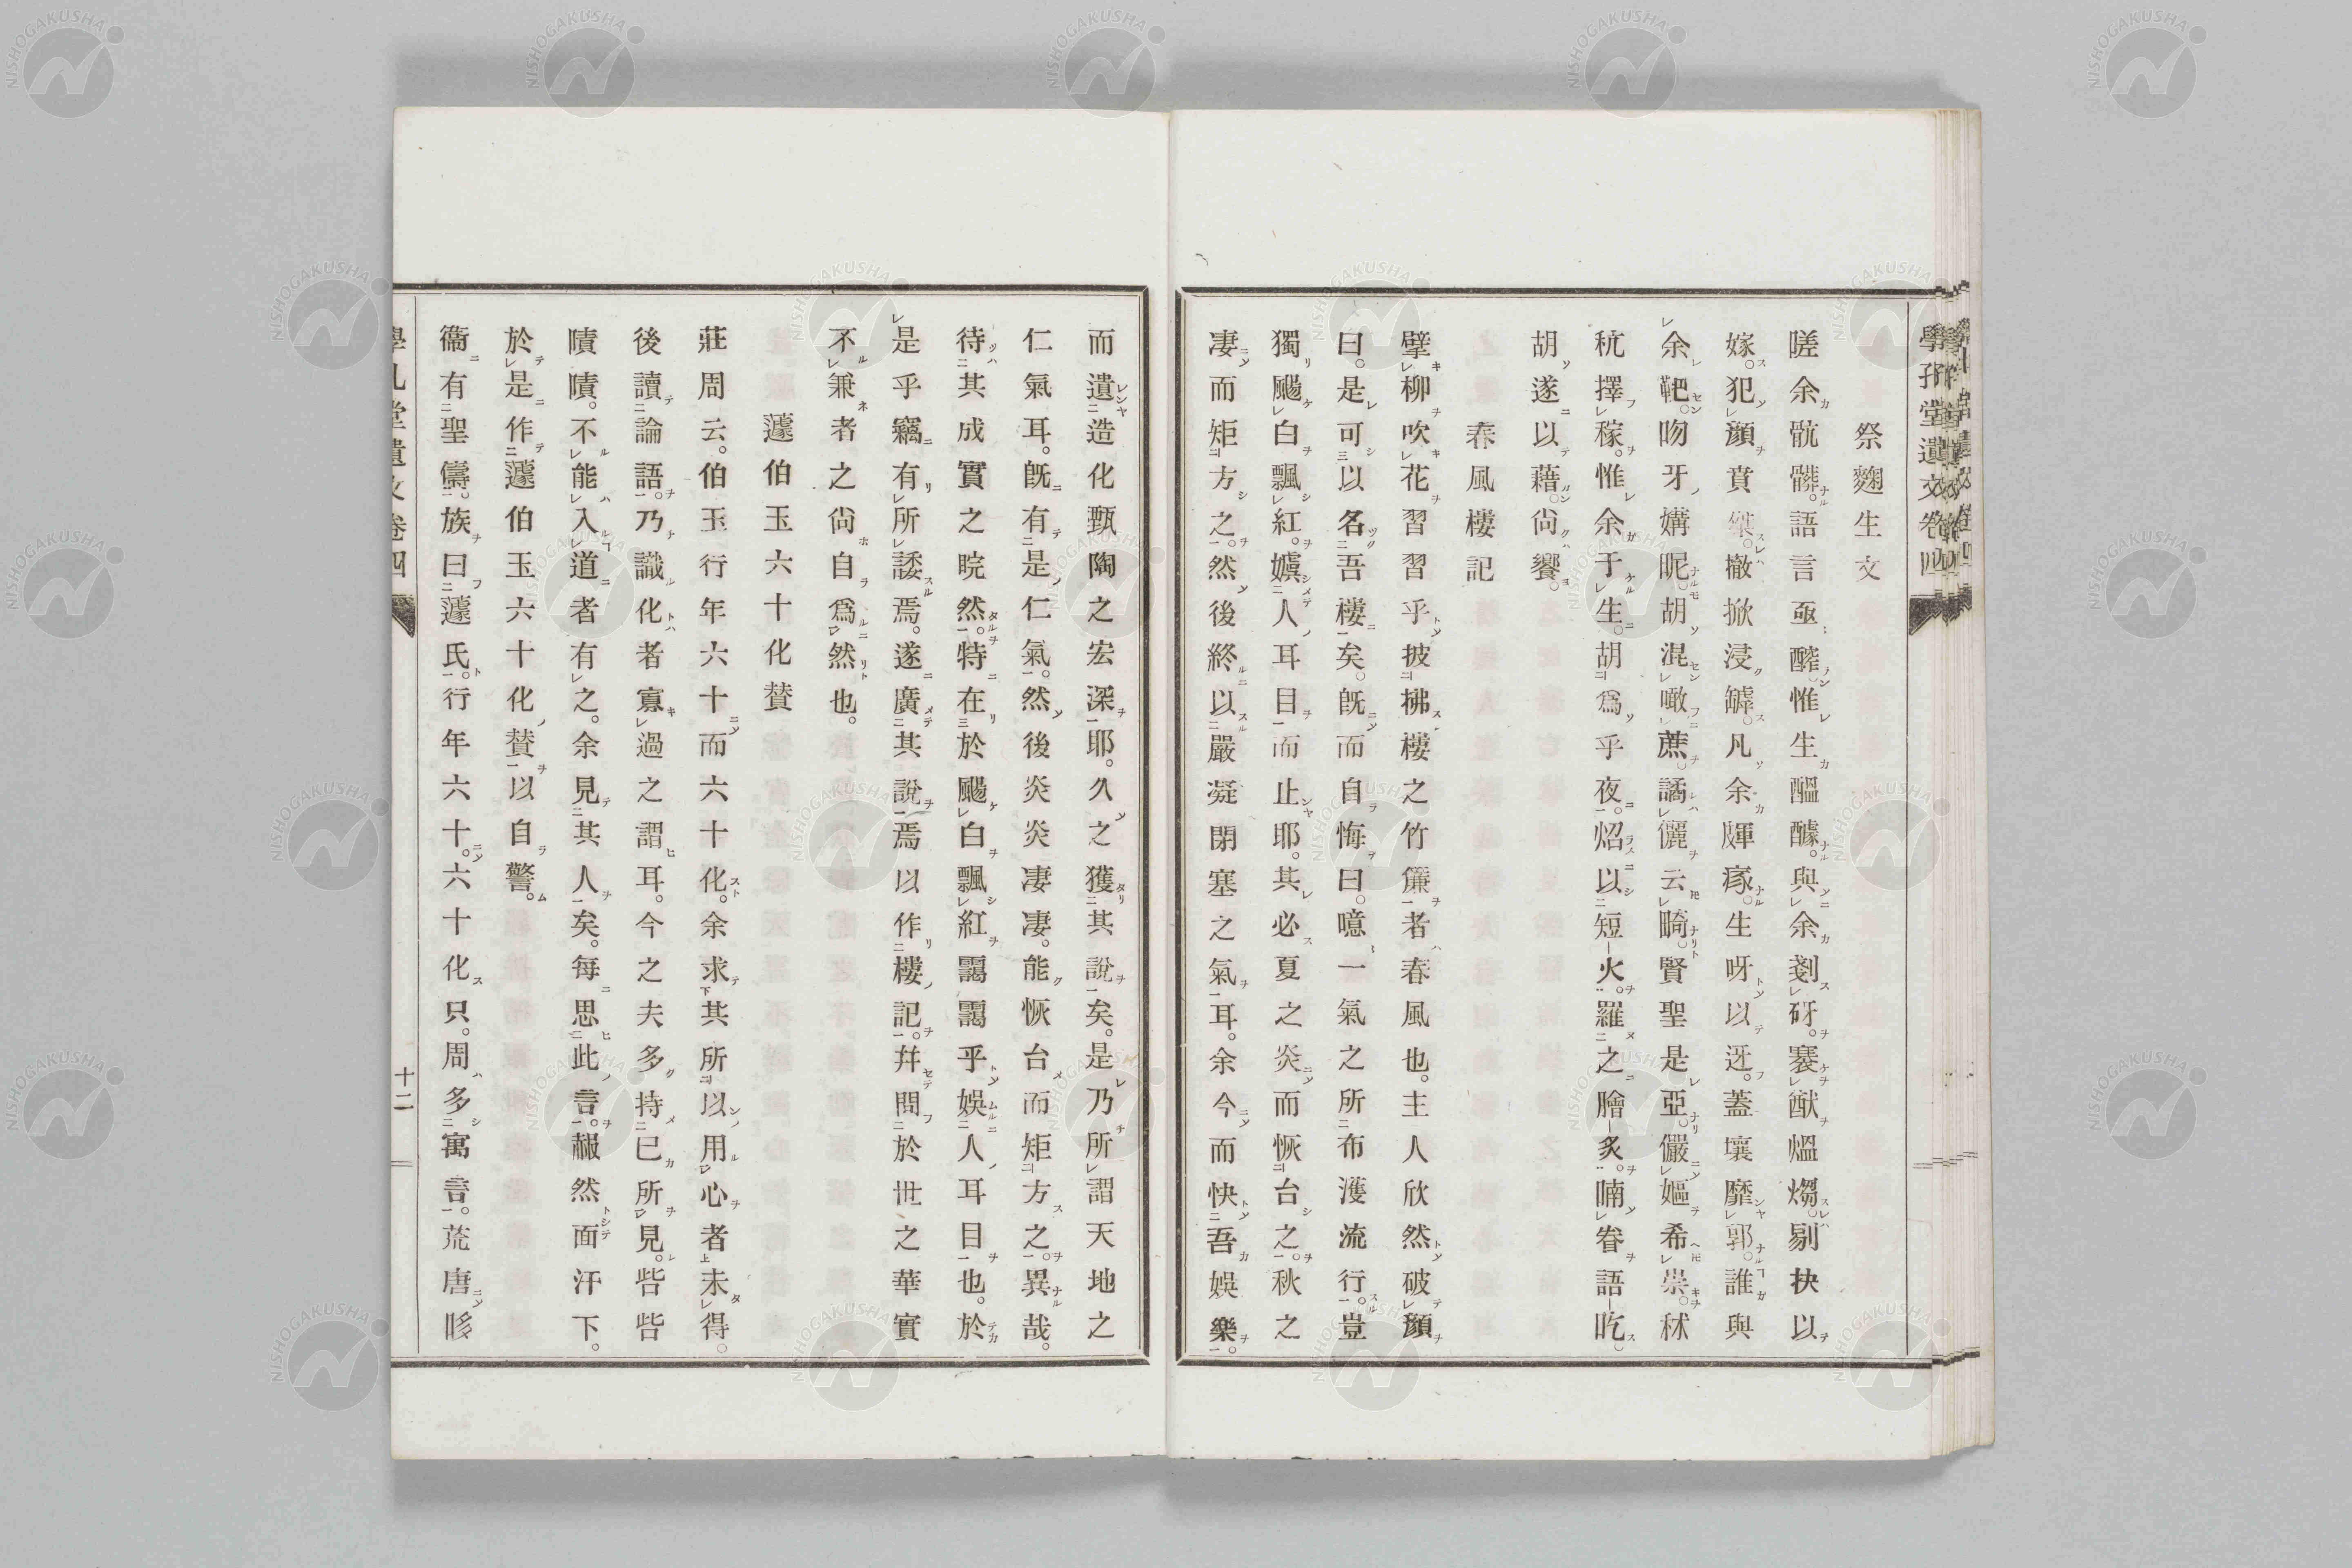 學孔堂遺文卷四
祭麴生文
嗟余骯髒。語言亟醡。惟生醞醵。與余剗砑。褰猷熅燐。剔抉以
嫁。犯顏賁傑。撤掀浸罅。凡余皹瘃。生呀以迓。蓋壤靡郭。誰與
余靶。吻牙媾昵。胡混瞰蔗。譎儷云畸。賢聖是亞。儼嫗希祟。秫
秔擇稼。惟余于生。胡爲乎夜。炤以短火。羅之膾炙。喃眷語吃。
胡遂以藉。尙饗。
春風樓記
擘柳吹花習習乎披拂樓之竹簾者春風也。主人欣然破顏
曰。是可以名吾樓矣。旣而自悔曰。噫一氣之所布濩流行。豈
獨颺白飄紅。娛人耳目而止耶。其必夏之炎而恢台之。秋之
凄而矩方之。然後終以嚴凝閉塞之氣耳。余今而快吾娛樂。
而遺造化甄陶之宏深耶。久之獲其說矣。是乃所謂天地之
仁氣耳。旣有是仁氣。然後炎炎凄凄。能恢台而矩方之。異哉。
待其成實之晥然。特在於颺白飄紅靄靄乎娛人耳目也。於
是乎竊有所諉焉。遂廣其說焉以作樓記。幷問於世之華實
不兼者之尙自爲然也。
蘧伯玉六十化賛
莊周云。伯玉行年六十而六十化。余求其所以用心者未得。
後讀論語。乃識化者寡過之謂耳。今之夫多持已所見。呰呰
嘖嘖。不能入道者有之。余見其人矣。每思此言。赧然面汗下。
於是作蘧伯玉六十化賛以自警。
衞有聖儔。族曰蘧氏。行年六十。六十化只。周多寓言。荒唐
學孔堂遺文卷四
十二